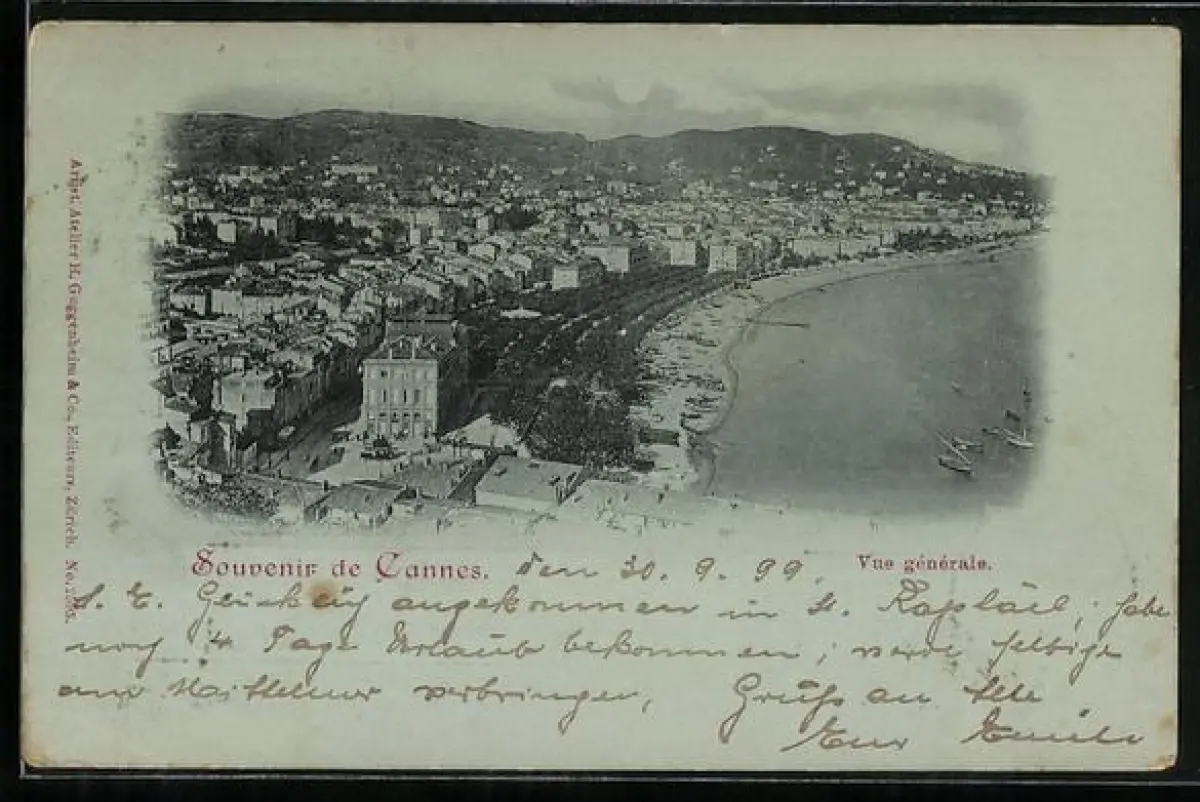 Artist. Atelier H. Guggenheim & Co., Editeurs, Zürich. No.
Souvenir de Cannes. den 30. 9. 99.
Vue générale.
Glücklich angekommen in St. Raphaël, habe
noch 4 Tage Urlaub bekommen, werde selbige
am Mittelmeer verbringen, Gruß an Alle
Euer Emile